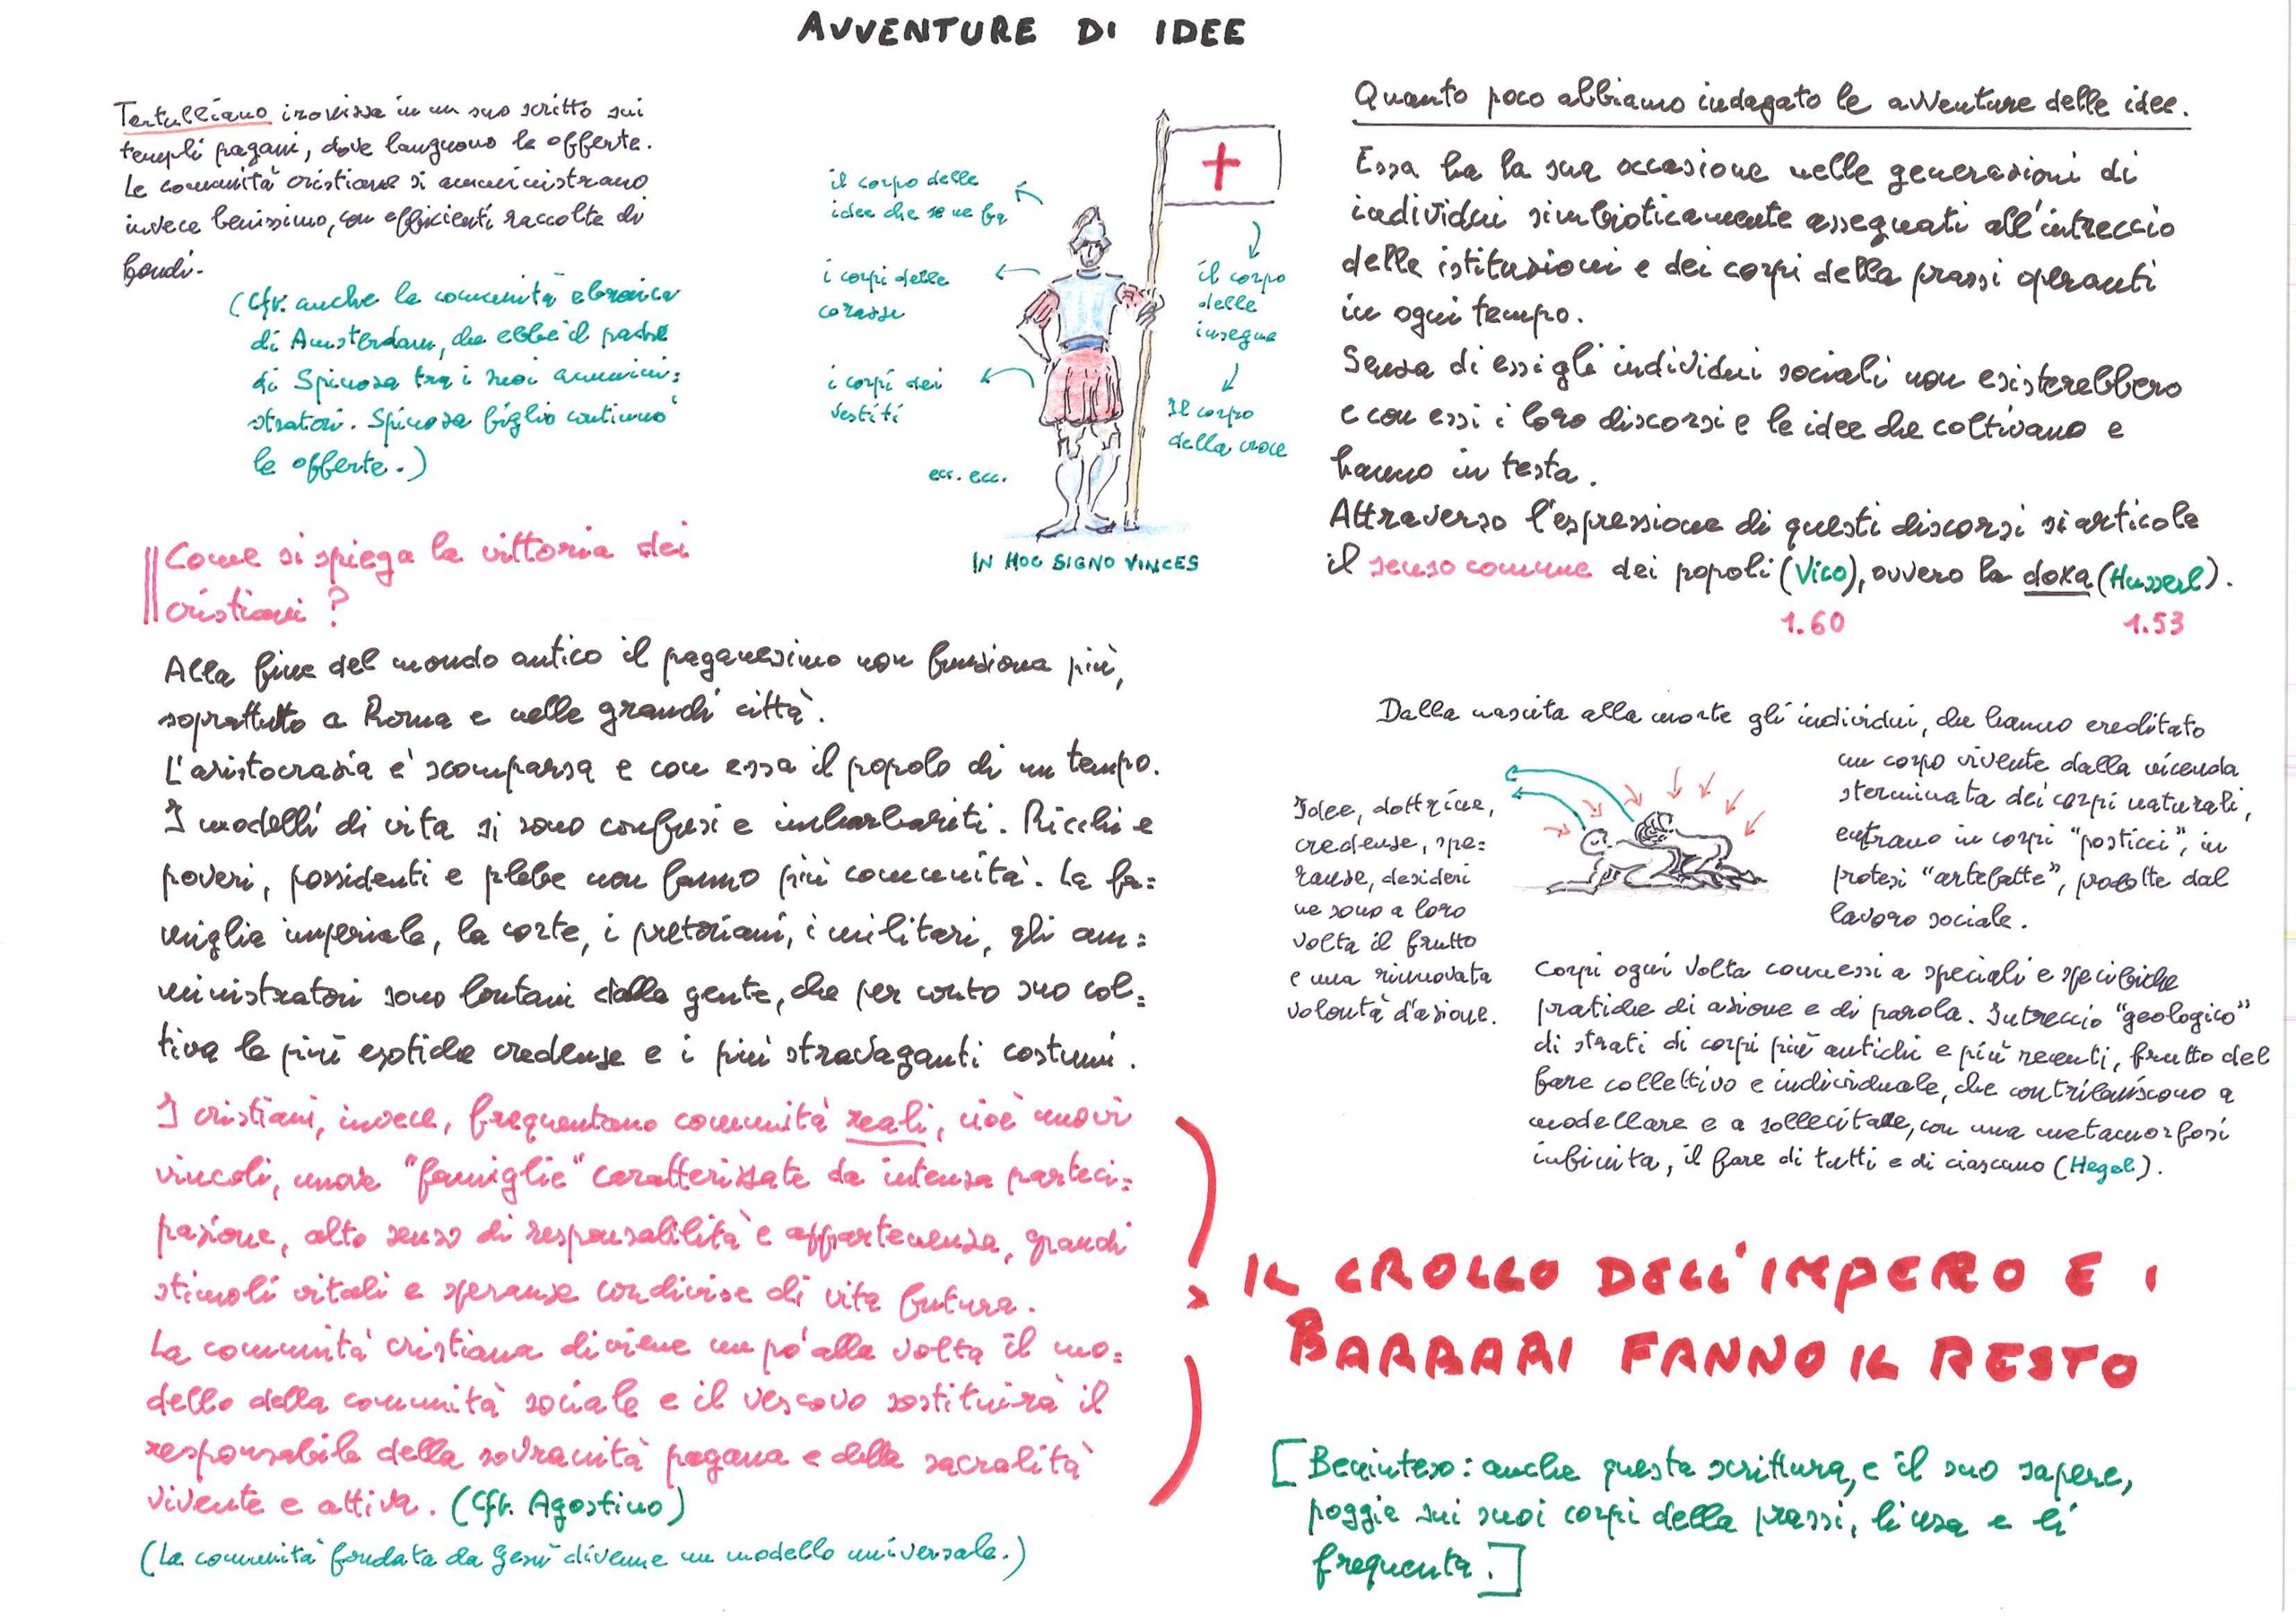 AVVENTURE DI IDEE
Tertulliano ironizza in un suo scritto sui
templi pagani, dove languono le offerte.
Le comunità cristiane si amministrano
invece benissimo, con efficienti raccolte di
fondi.
(Cfr. anche la comunità ebraica
di Amsterdam, che ebbe il padre
di Spinoza tra i suoi ammini=
stratori. Spinoza figlio continuò
le offerte.)
il corpo delle
idee che se ne fa
i corpi delle
corazze
i corpi dei
vestiti
ecc. ecc.
il corpo
delle
insegne
Il corpo
della croce
IN HOC SIGNO VINCES
Come si spiega la vittoria dei
cristiani?
Alla fine del mondo antico il paganesimo non funziona più,
soprattutto a Roma e nelle grandi città.
L'aristocrazia è scomparsa e con essa il popolo di un tempo.
I modelli di vita si sono confusi e imbarbariti. Ricchi e
poveri, possidenti e plebe non fanno più comunità. La fa=
miglia imperiale, la corte, i pretoriani, i militari, gli am=
ministratori sono lontani dalla gente, che per conto suo col=
tiva le più esotiche credenze e i più stravaganti costumi.
I cristiani, invece, frequentano comunità reali, cioè nuovi
vincoli, nuove "famiglie" caratterizzate da intensa parteci=
pazione, alto senso di responsabilità e appartenenza, grandi
stimoli vitali e speranze condivise di vita futura.
La comunità cristiana diviene un po' alla volta il mo=
dello della comunità sociale e il vescovo sostituirà il
responsabile della sovranità pagana e della sacralità
vivente e attiva. (Cfr. Agostino)
(La comunità fondata da Gesù divenne un modello universale.)
Quanto poco abbiamo indagato le avventure delle idee.
Essa ha la sua occasione nelle generazioni di
individui simbioticamente assegnati all'intreccio
delle istituzioni e dei corpi della prassi operanti
in ogni tempo.
Senza di essi gli individui sociali non esisterebbero
e con essi i loro discorsi e le idee che coltivano e
hanno in testa.
Attraverso l'espressione di questi discorsi si articola
il senso comune dei popoli (Vico), ovvero la doxa (Husserl).
1.60 1.53
Dalla nascita alla morte gli individui, che hanno ereditato
un corpo vivente dalla vicenda
sterminata dei corpi naturali,
entrano in corpi "posticci", in
protesi "artefatte", prodotte dal
lavoro sociale.
Idee, dottrine,
credenze, spe=
ranze, desideri
ne sono a loro
volta il frutto
e una rinnovata
volontà d'azione.
Corpi ogni volta connessi a speciali e specifiche
pratiche di azione e di parola. Intreccio "geologico"
di strati di corpi più antichi e più recenti, frutto del
fare collettivo e individuale, che contribuiscono a
modellare e a sollecitare, con una metamorfosi
infinita, il fare di tutti e di ciascuno (Hegel).
IL CROLLO DELL'IMPERO E I
BARBARI FANNO IL RESTO
[Beninteso: anche questa scrittura, e il suo sapere,
poggia sui suoi corpi della prassi, li usa e li
frequenta.]